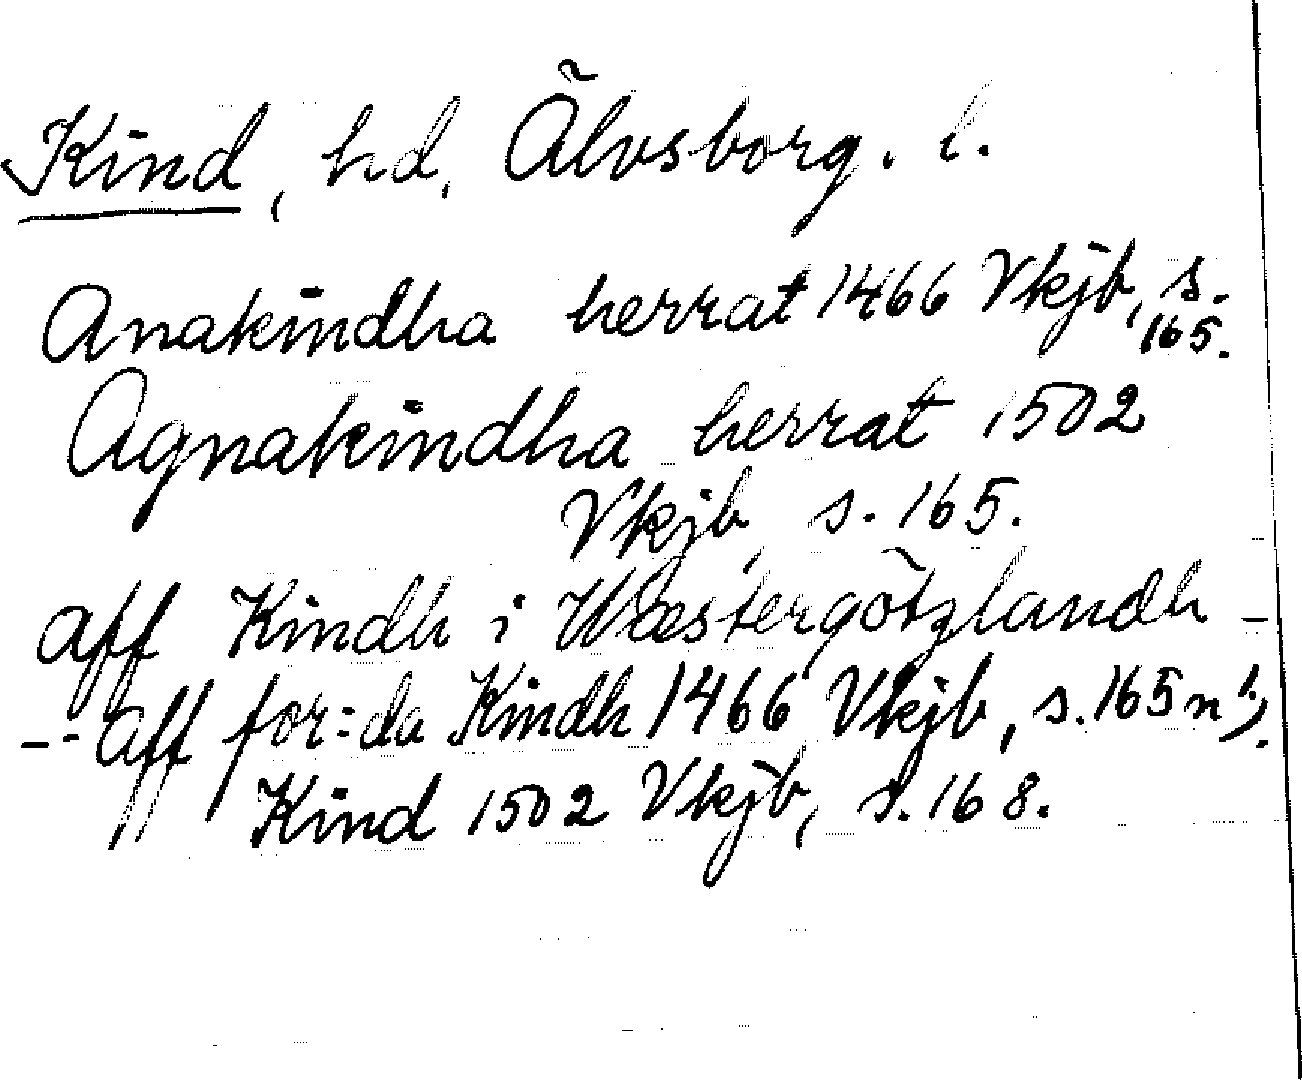 Kind, hd, Älvsborg. l.
Anakindha herrat 1466 Vkjb, s. 165.
Agnakindha herrat 1502
Vkjb, s. 165.
aff Kindh i Wæstergötzlandh -
-- aff for:da Kindh 1466 Vkjb, s. 165 n 1).
Kind 1502 Vkjb, s. 168.